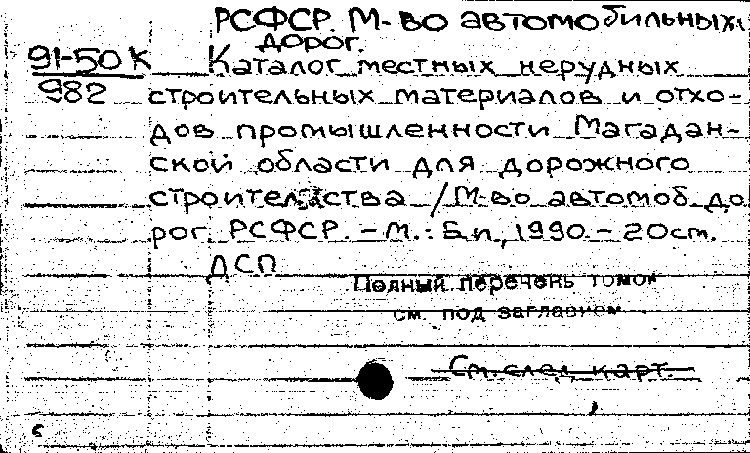 РСФСР. М-во автомобильных
дорог.
91-50К Каталог местных нерудных
982 строительных материалов и отхо-
дов промышленности Магадан-
ской области для дорожного
строительства / М-во автомоб. до
рог. РСФСР. – М.: Б.и., 1990. – 20см.
ДСП
Полный перечень томов
см. под заглавием
См. след. карт.